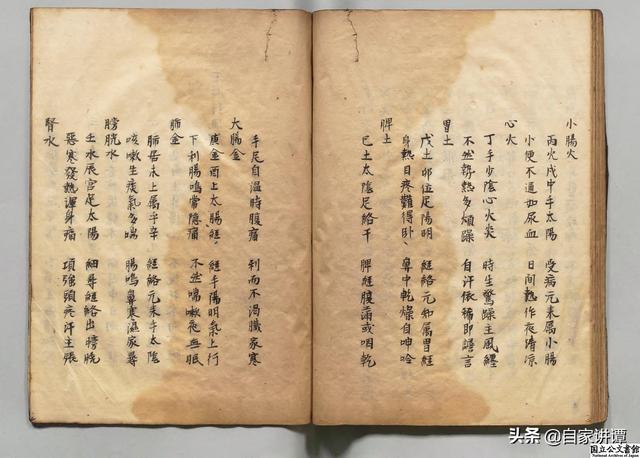 小腸火
丙火戌中手太陽 受病元来属小腸
小便不通如尿血 日間熱作夜清凉
心火
丁手少陰心火炎 時生驚躁主風纏
不然熱多煩躁 自汗依稀即譫言
胃土
戊土卯位足陽明 經絡元和属胃經
身熱目疼難得卧 鼻中乾燥自呻吟
脾土
巳土太陰足絡干 脾經腹滿或咽乾
手足自温時腹痛 利而不渴臓家寒
大腸金
庚金酉上太腸經 經手陽明氣上行
下利腸鳴常隐痛 不然喘嗽夜無眠
肺金
肺居未上属手辛 經絡元来手太陰
咳嗽生痰氣多喘 腸鳴鼻寒濕家尋
膀胱水
壬水辰宫足太陽 細尋經絡出膀胱
惡寒發熱渾身痛 項強頭疼汗主張
腎水
头条 @自家讲谭
国立公文書館
National Archives of Japan